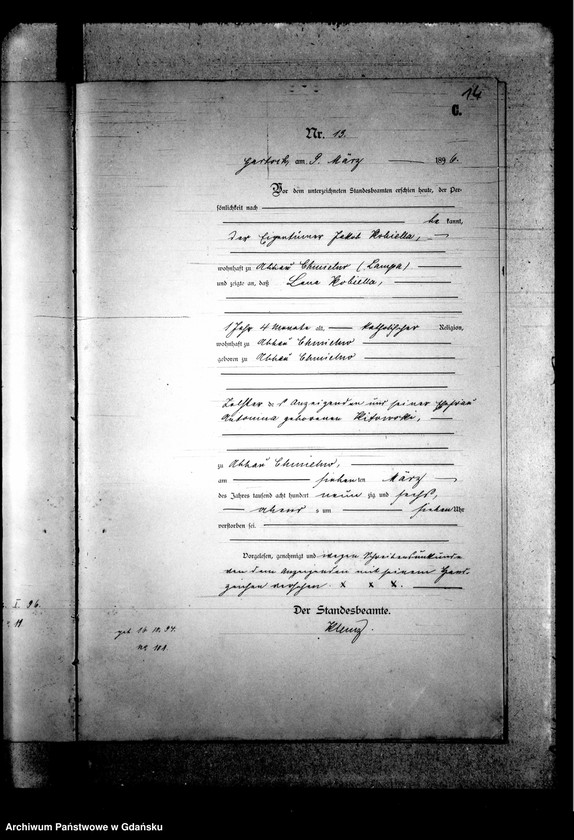 14
C.
Nr. 13.
am 9. März 1896.
Vor dem unterzeichneten Standesbeamten erschien heute, der Per-
sönlichkeit nach
be kannt,
der Eigentümer Jakob Kobiella,
wohnhaft zu Abbau Chmielno (Lampa)
und zeigte an, daß Lena Kobiella,
1 Jahr 4 Monate alt, katholischer Religion,
wohnhaft zu Abbau Chmielno
geboren zu Abbau Chmielno
Tochter des Anzeigenden und seiner Ehefrau
geborenen Kitowski,
zu Abbau Chmielno,
am siebenten März
des Jahres tausend acht hundert neun zig und sechs,
abends um sieben Uhr
verstorben sei.
Vorgelesen, genehmigt und wegen Schreibensunkunde
von dem Anzeigenden mit seinem Hand-
zeichen versehen. X X X.
Der Standesbeamte.
I. 96.
11
geb. 10. 94.
No 101.
Archiwum Państwowe w Gdańsku